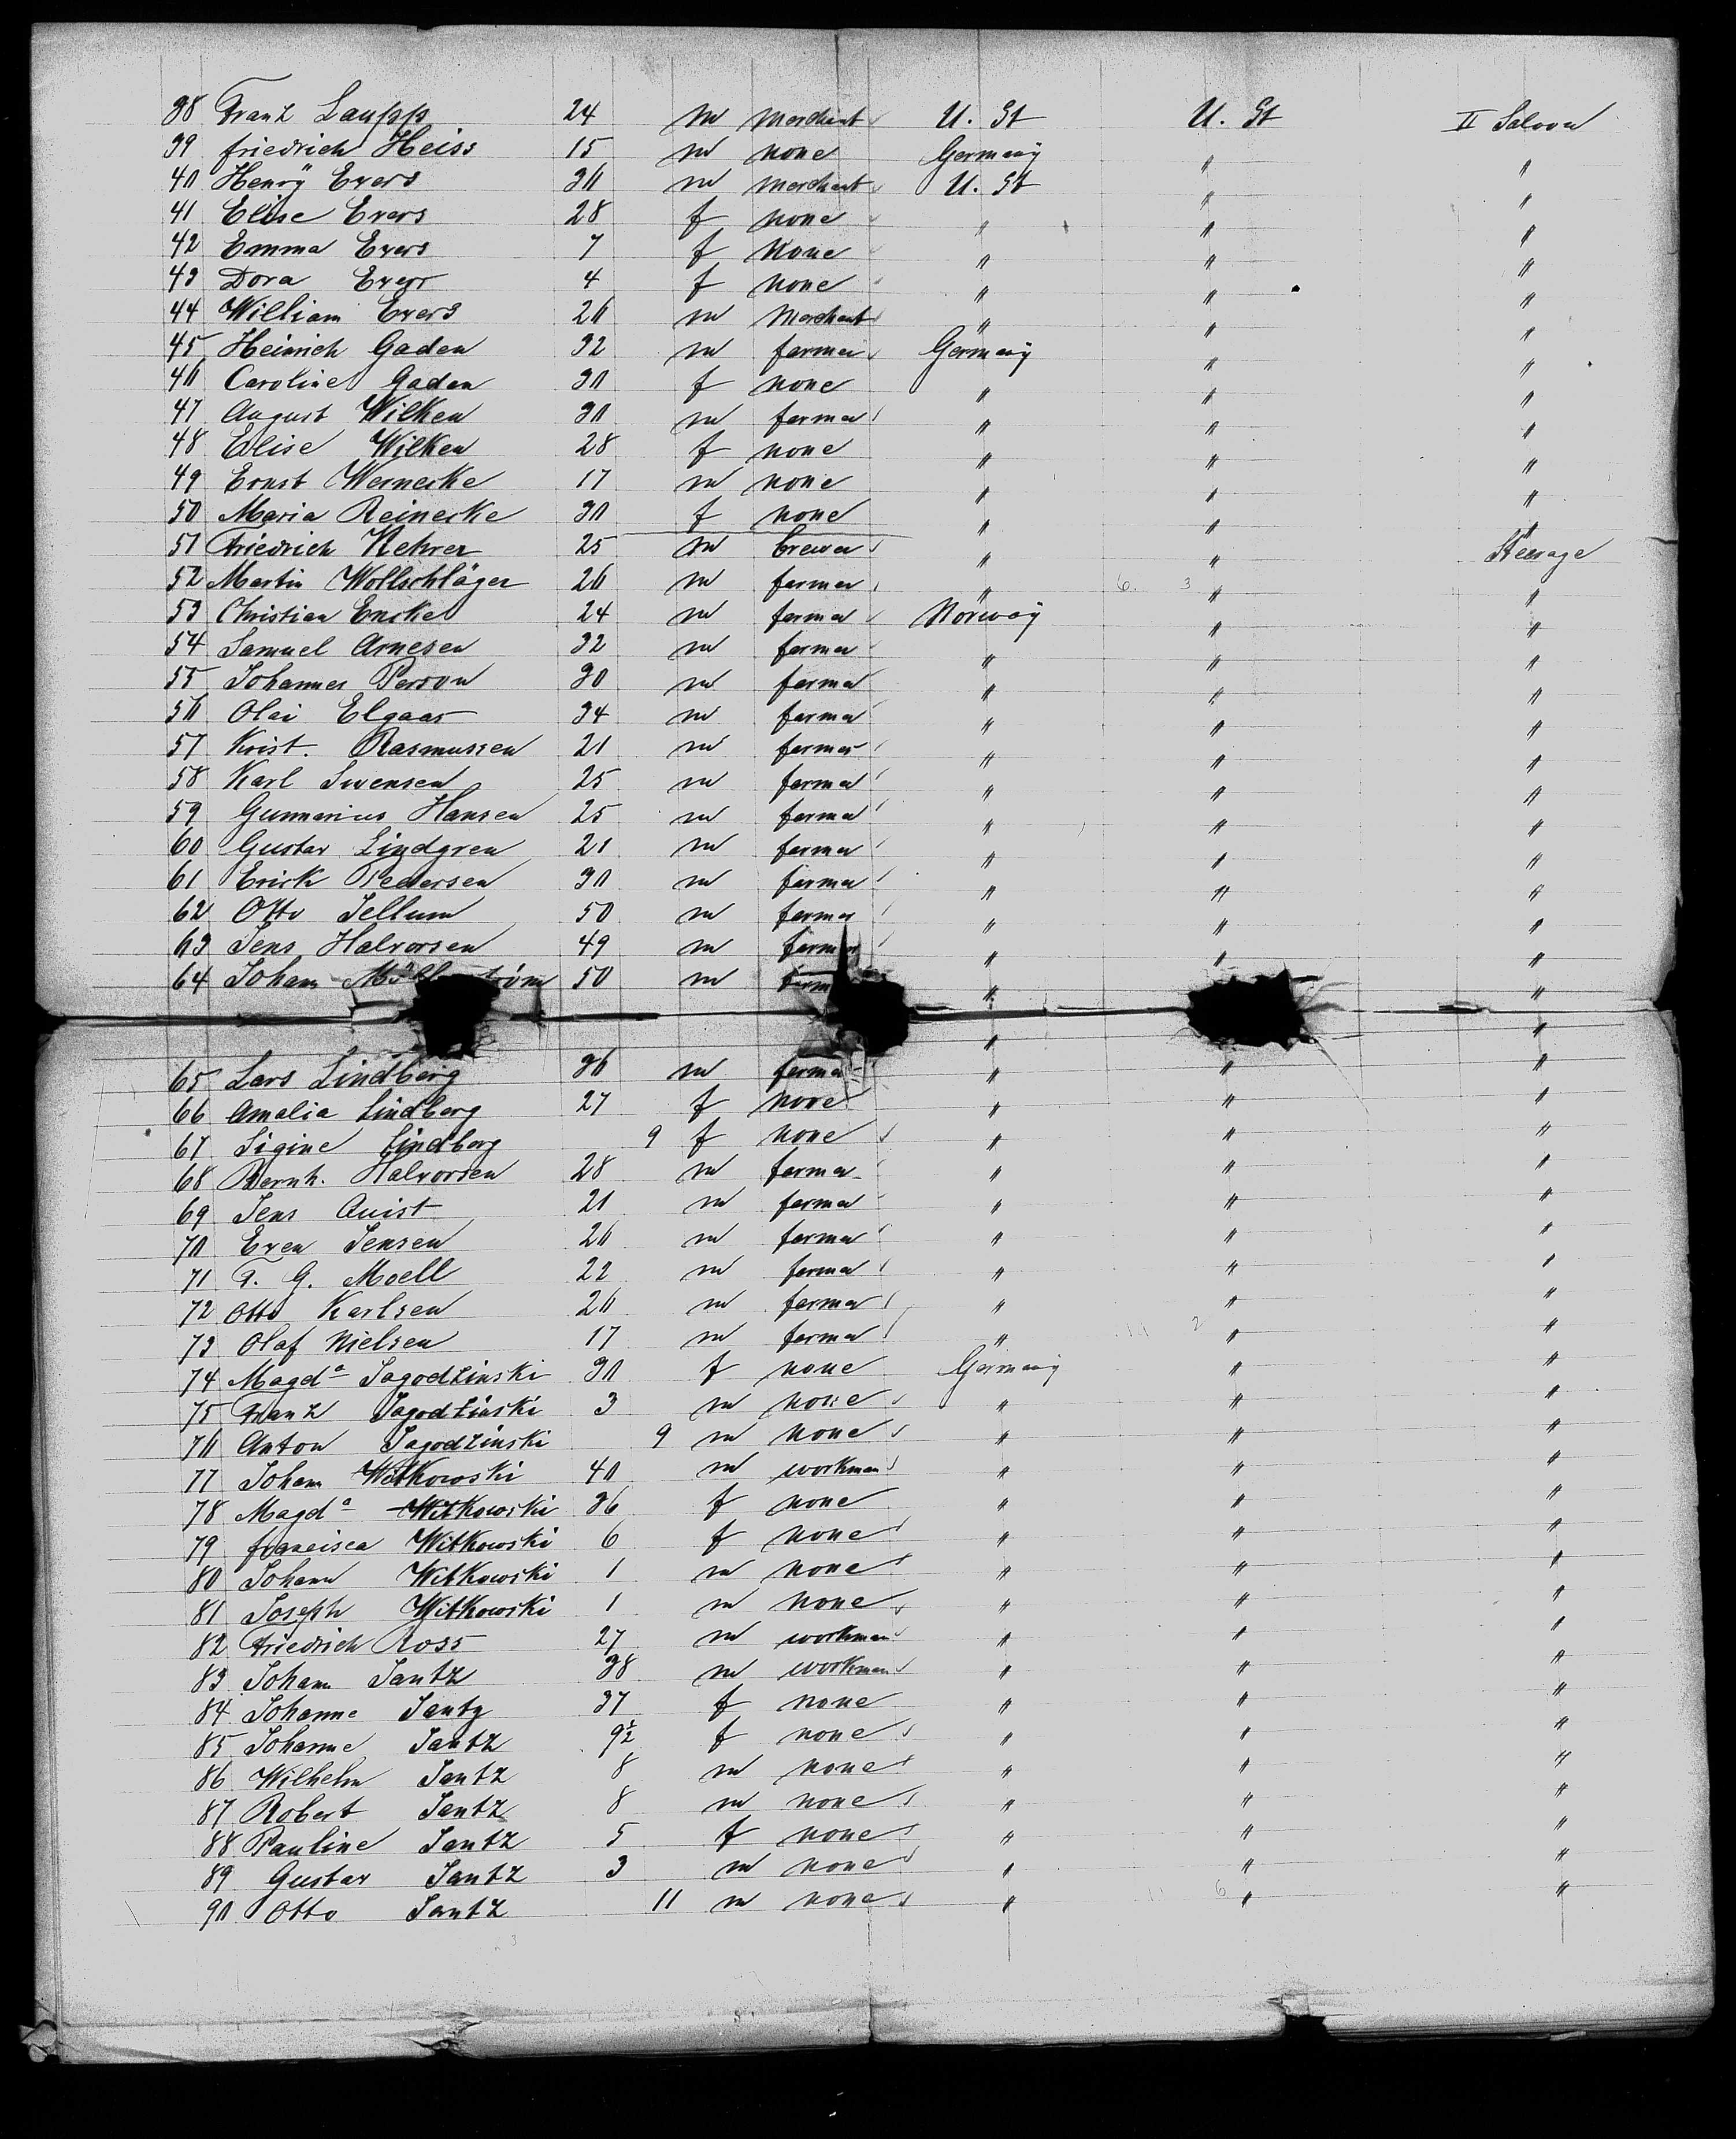 38 Franz Laupp 24 m merchant U. St U. St II Saloon
39 friedrich Heiss 15 m none Germany " "
40 Henry Evers 30 m merchant U. St " "
41 Elise Evers 28 f none " " "
42 Emma Evers 7 f none " " "
43 Dora Evers 4 f none " " "
44 William Evers 20 m Merchant " " "
45 Heinrich Gaden 32 m farmer Germany " "
46 Caroline Gaden 30 f none " " "
47 August Wilken 30 m farmer " " "
48 Elise Wilken 28 f none " " "
49 Ernst Wernecke 17 m none " " "
50 Maria Reinecke 30 f none " " "
51 Friedrich Nehrer 25 m brewer " " Steerage
52 Martin Wollschläger 26 m farmer " " "
53 Christian Encke 24 m farmer Norway " "
54 Samuel Arnesen 32 m farmer " " "
55 Johannes Persson 30 m farmer " " "
56 Olai Elgaas 34 m farmer " " "
57 Krist. Rasmussen 21 m farmer " " "
58 Karl Swensen 25 m farmer " " "
59 Gunnarius Hansen 25 m farmer " " "
60 Gustav Lindgren 21 m farmer " " "
61 Erick Pedersen 30 m farmer " " "
62 Otto Jellum 50 m farmer " " "
63 Jens Halvorsen 49 m farmer " " "
64 Johann 50 m farm " "
" "
65 Lars Lindberg 36 m farmer " " "
66 Amalia Lindberg 27 f none " " "
67 Sigine Lindberg 9 f none " " "
68 Bernh. Halvorsen 28 m farmer " " "
69 Jens Quist 21 m farmer " " "
70 Even Jensen 20 m farmer " " "
71 F. G. Moell 22 m farmer " " "
72 Otto Karlsen 20 m farmer " " "
73 Olaf Nielsen 17 m farmer " " "
74 Magda Jagodzinski 30 f none Germany " "
75 Franz Jagodzinski 3 m none " " "
76 Anton Jagodzinski 9 m none " " "
77 Johann Witkowski 40 m workman " " "
78 Magda Witkowski 36 f none " " "
79 francisca Witkowski 6 f none " " "
80 Johann Witkowski 1 m none " " "
81 Joseph Witkowski 1 m none " " "
82 Friedrich Ross 27 m workman " " "
83 Johann Jantz 38 m workman " " "
84 Johanne Jantz 37 f none " " "
85 Johanne Jantz 9½ f none " " "
86 Wilhelm Jantz 8 m none " " "
87 Robert Jantz 8 m none " " "
88 Pauline Jantz 5 f none " " "
89 Gustav Jantz 3 m none " " "
90 Otto Jantz 11 m none " " "